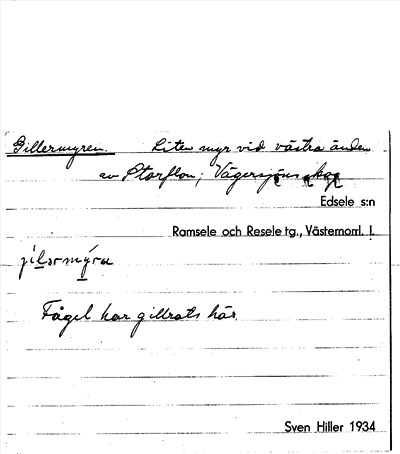 Gillermyren. Liten myr vid västra änden
av Storflon; Vägersjöns skog
Edsele s:n
Ramsele och Resele tg., Västernorrl. l.
Fågel har gillrats här.
Sven Hiller 1934